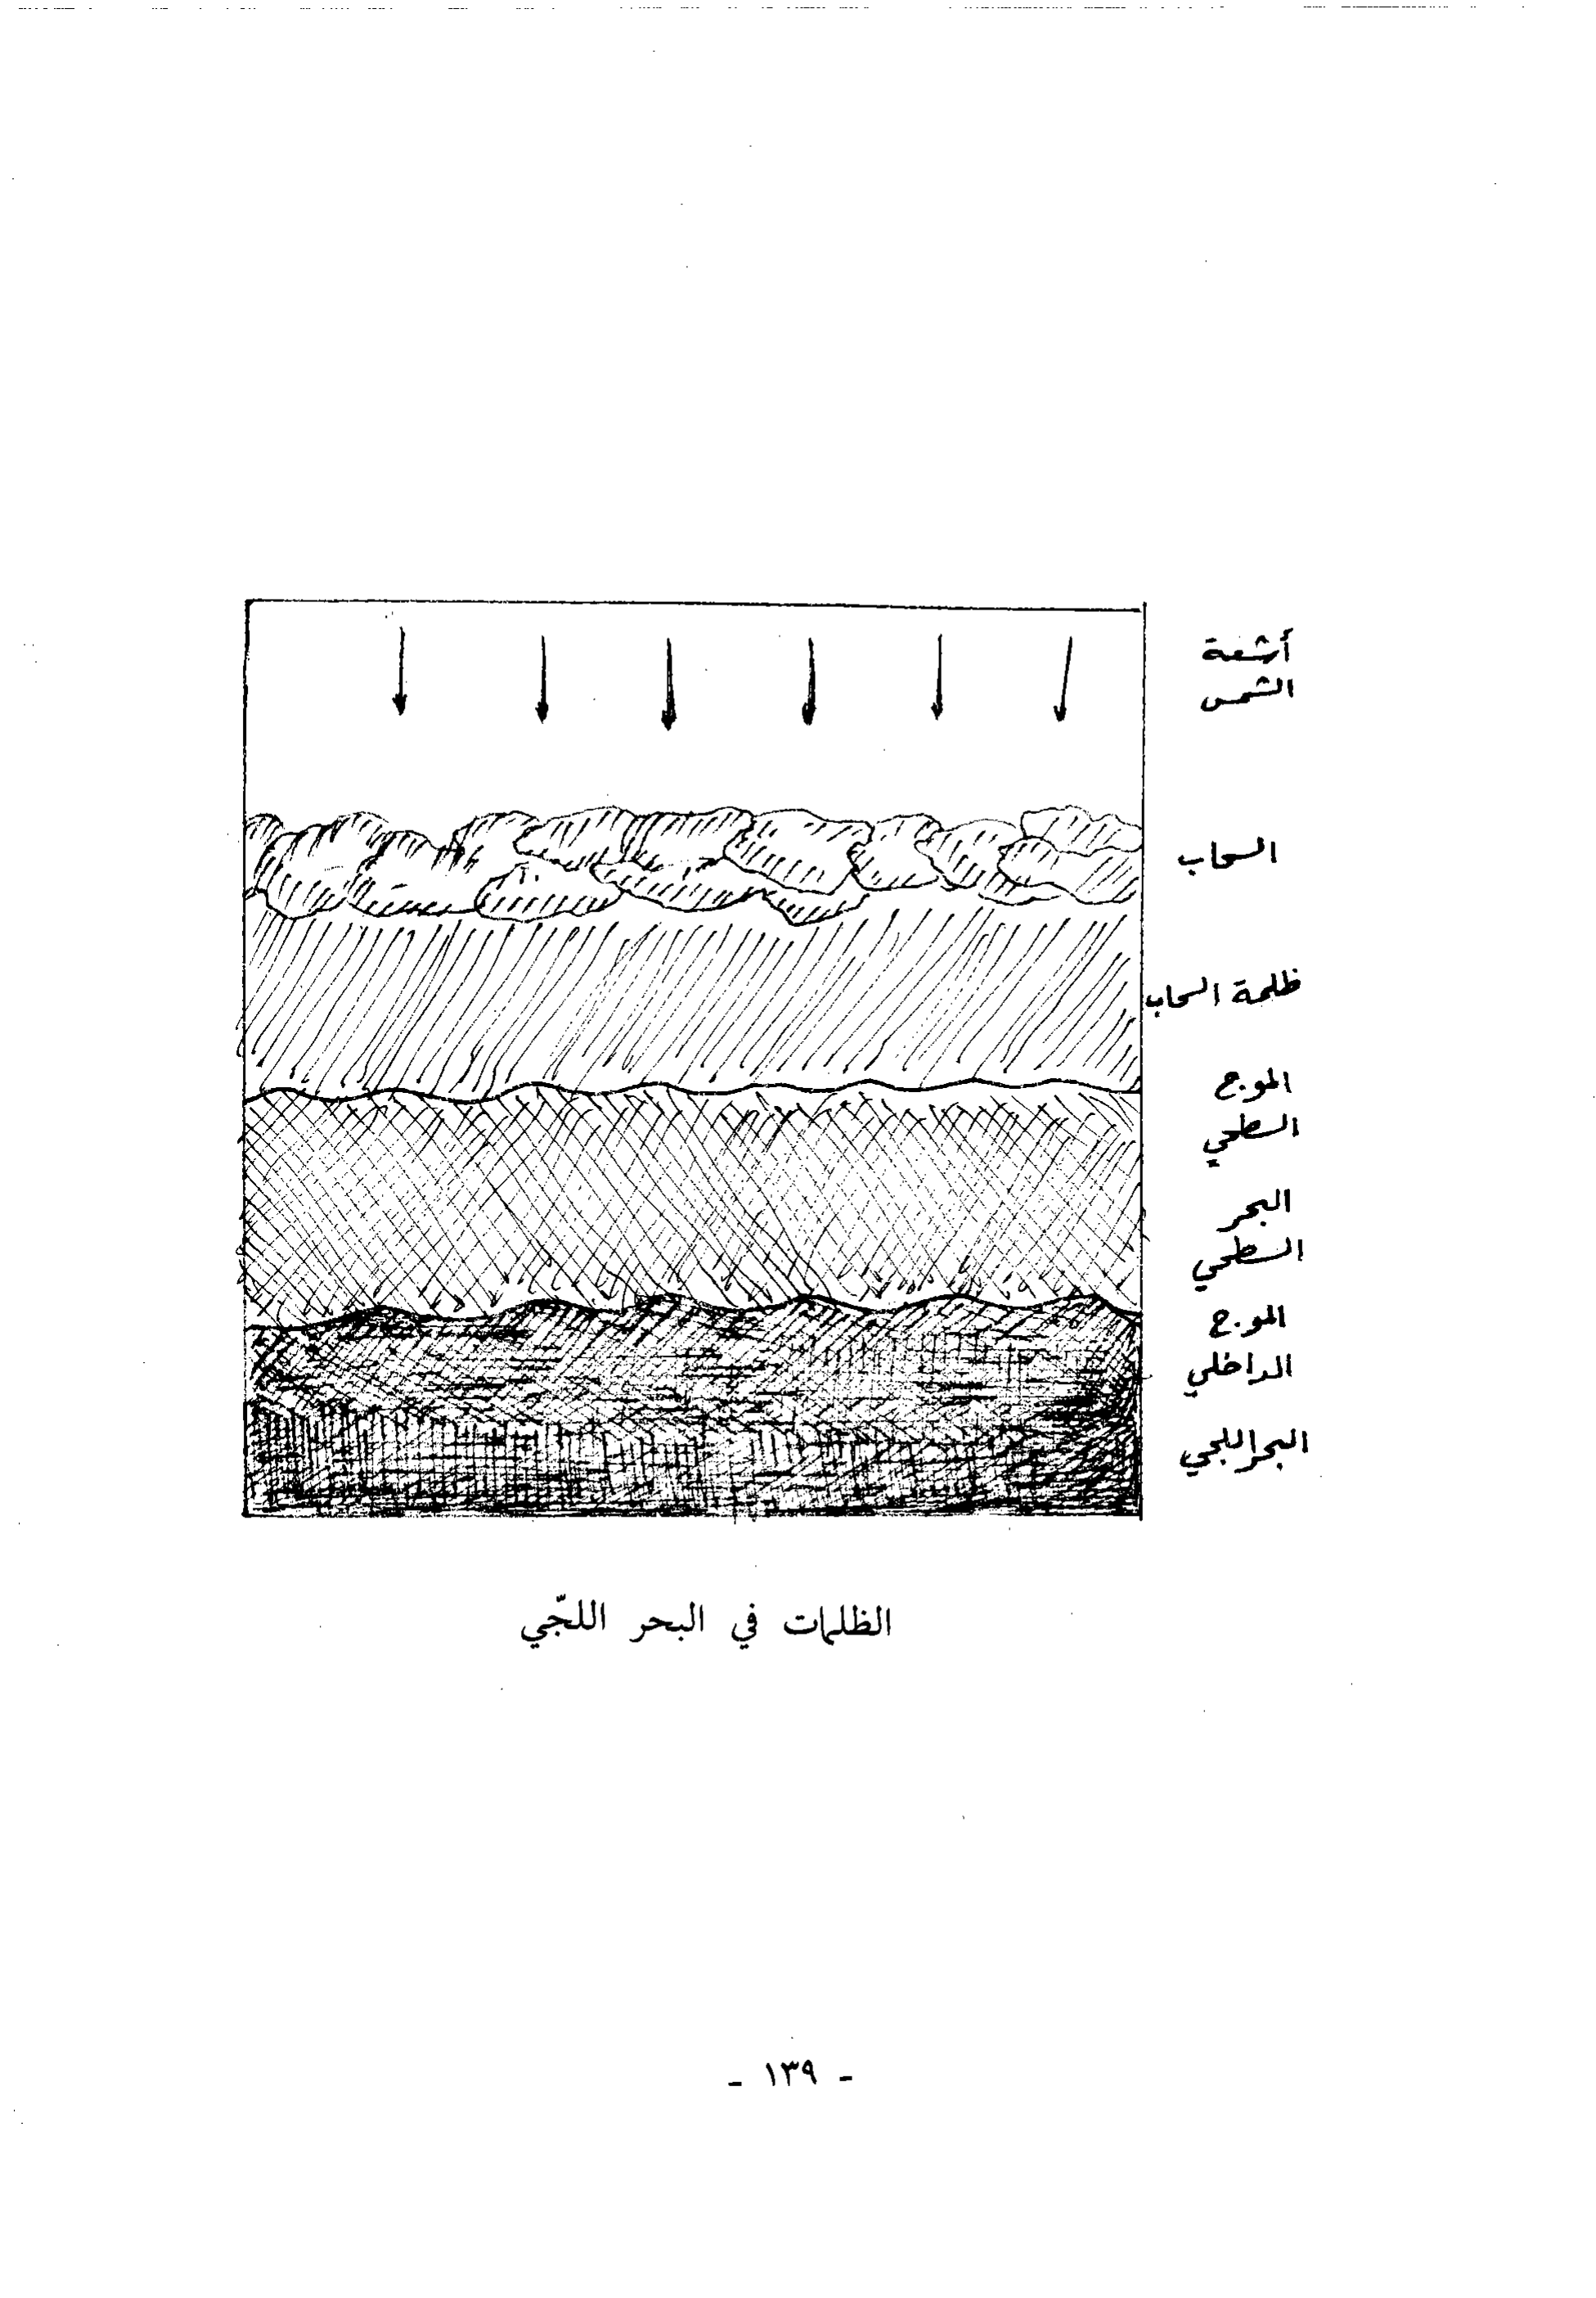 أشعة
الشمس
السحاب
ظلمة السحاب
الموج
السطحي
البحر
السطحي
الموج
الداخلي
البحر اللجي
الظلمات في البحر اللجّي
- ١٣٩ -